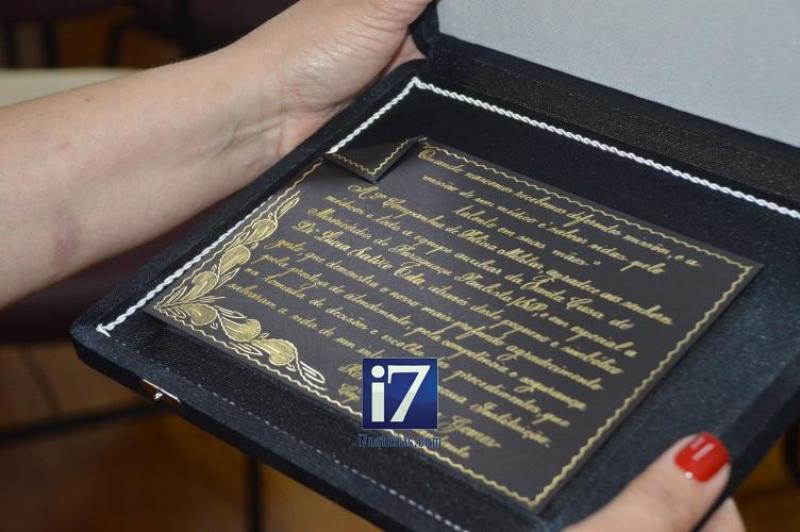 Quando nascemos recebemos diferentes missões, e a
missão de um médico é salvar vidas pelo
talento em suas mãos"
A 3ª Companhia de Polícia Militar, agradece aos senhores
médicos e toda a equipe auxiliar da Santa Casa de
Misericórdia de Paraguaçu Paulista/SP, e em especial a
Drª Lúcia
através deste pequeno e simbólico
gesto que demonstra o nosso mais profundo agradecimento
pela presteza do atendimento, pela competência e segurança
na tomada de decisões e escolha
procedimentos que
salvaram a vida de um
nossa Instituição.
i7
i7noticias.com